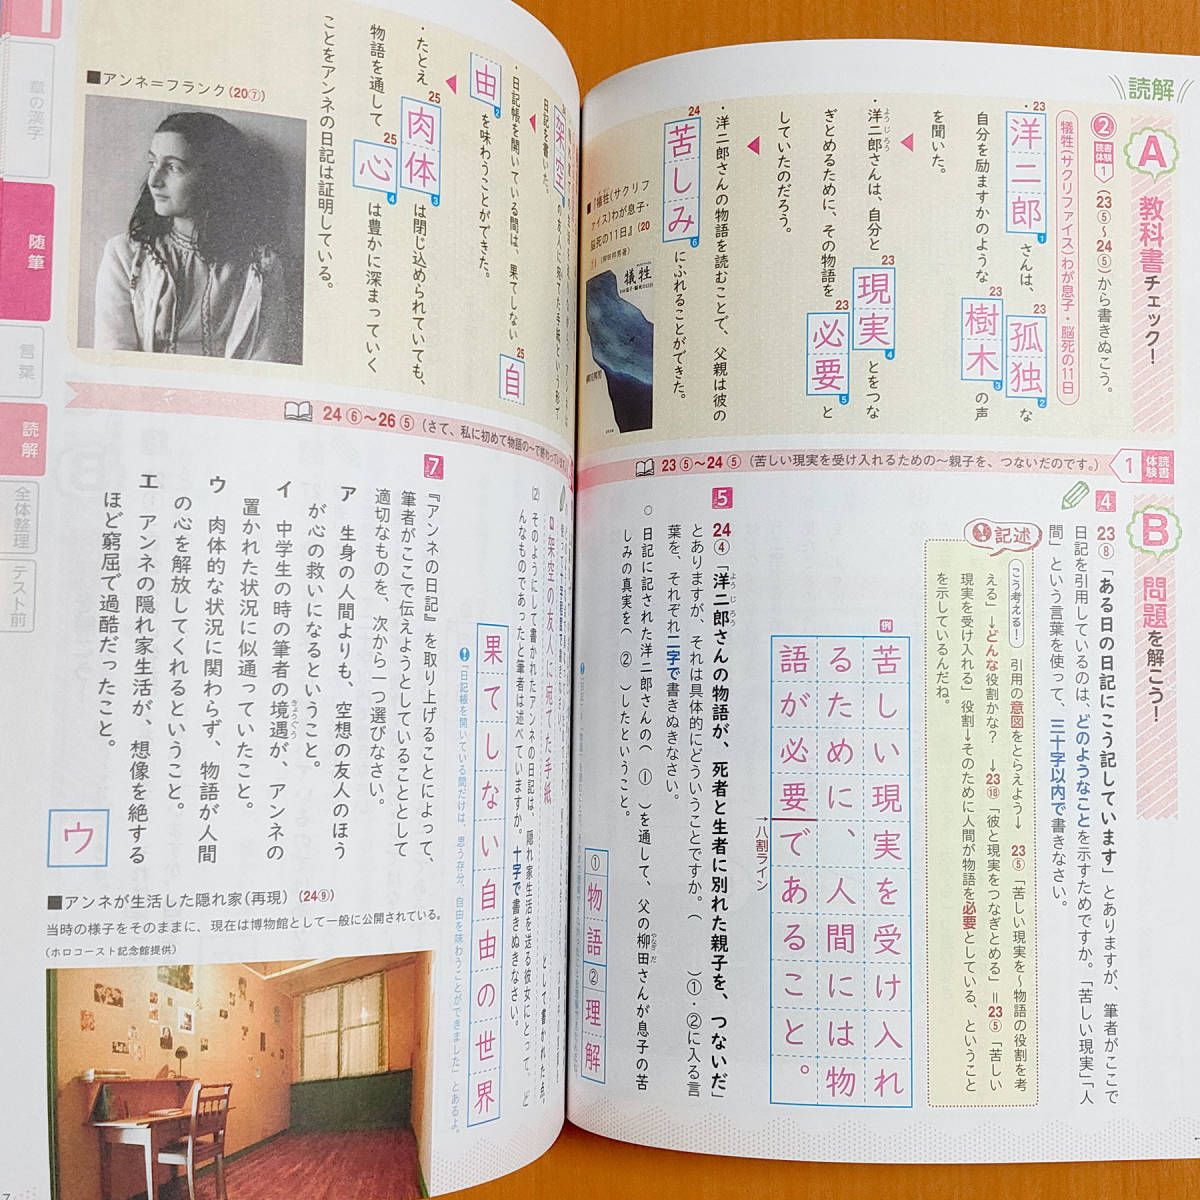 読解
A 教科書チェック！
② 読書体験1 (23⑤〜24⑤)から書きぬこう。
犠牲(サクリファイス)わが息子・脳死の11日
・洋二郎さんは、孤独な
自分を励ますかのような樹木の声
を聞いた。
・洋二郎さんは、自分と現実とをつな
ぎとめるために、その物語を必要と
していたのだろう。
・洋二郎さんの物語を読むことで、父親は彼の
苦しみにふれることができた。
■『犠牲(サクリファイス)わが息子・脳死の11日』(20
犠牲
1 読書体験 23⑤〜24⑤ (苦しい現実を受け入れるための〜親子を、つないだのです。)
B 問題を解こう！
4 23⑧「ある日の日記にこう記しています」とありますが、筆者がここで
日記を引用しているのは、どのようなことを示すためですか。「苦しい現実」「人
間」という言葉を使って、三十字以内で書きなさい。
記述
こう考える！ 引用の意図をとらえよう→23⑤「苦しい現実を〜物語の役割を考
える」→どんな役割かな？→23⑱「彼と現実をつなぎとめる」＝23⑤「苦しい
現実を受け入れる」役割→そのために人間が物語を必要としている、ということ
を示しているんだね。
例
苦しい現実を受け入れ
るために、人間には物
語が必要であること。
→八割ライン
5 24④「洋二郎さんの物語が、死者と生者に別れた親子を、つないだ」
とありますが、それは具体的にどういうことですか。( )①・②に入る言
葉を、それぞれ二字で書きぬきなさい。
○ 日記に記された洋二郎さんの( ① )を通して、父の柳田さんが息子の苦
しみの真実を( ② )したということ。
①物語②理解
架空の友人に宛てた手紙という形で
日記を書いた。
・日記帳を開いている間は、果てしない自
由を味わうことができた。
・たとえ肉体は閉じ込められていても、
物語を通して心は豊かに深まっていく
ことをアンネの日記は証明している。
■アンネ＝フランク(20⑦)
24⑥〜26⑤ (さて、私に初めて物語の〜て終わっています。)
架空の友人に宛てた手紙 として書かれた点。
(2) そのようにして書かれたアンネの日記は、隠れ家生活を送る彼女にとって、ど
んなものであったと筆者は述べていますか。十字で書きぬきなさい。
果てしない自由の世界
「日記帳を開いている間だけは、思う存分、自由を味わうことができました」とあるよ。
7 『アンネの日記』を取り上げることによって、
筆者がここで伝えようとしていることとして
適切なものを、次から一つ選びなさい。
ア 生身の人間よりも、空想の友人のほう
が心の救いになるということ。
イ 中学生の時の筆者の境遇が、アンネの
置かれた状況に似通っていたこと。
ウ 肉体的な状況に関わらず、物語が人間
の心を解放してくれるということ。
エ アンネの隠れ家生活が、想像を絶する
ほど窮屈で過酷だったこと。
ウ
■アンネが生活した隠れ家(再現)(24⑨)
当時の様子をそのままに、現在は博物館として一般に公開されている。
(ホロコースト記念館提供)
章の漢字
随筆
言葉
読解
全体整理
テスト前